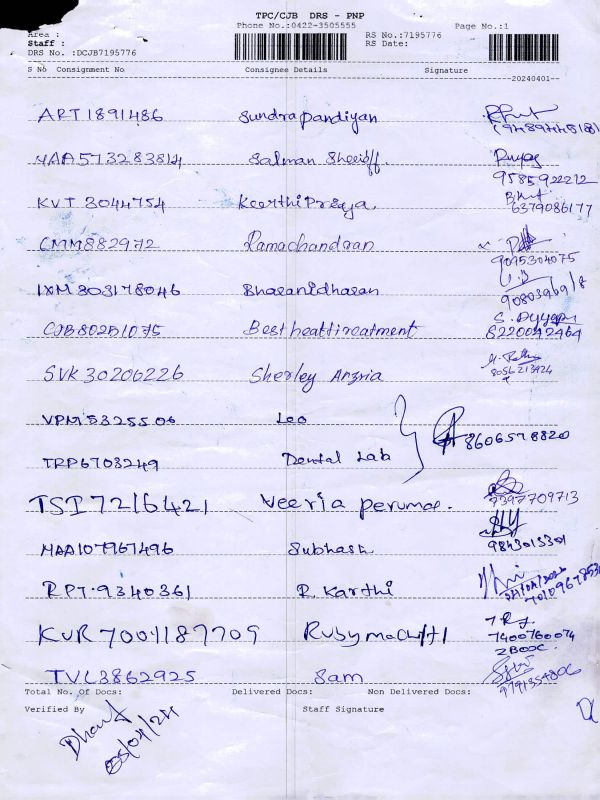 TPC/CJB DRS - PNP
Phone No.:0422-3505555 Page No.:1
Area : RS No.:7195776
Staff : RS Date:
DRS No. :DCJB7195776
S No Consignment No Consignee Details Signature
20240401
ART1891486 Sundrapandiyan
MAA573283814 Salman Sheriff. 9585922212
KVT 3044754 Keerthi Priya 6379086177
CMM882972 Ramachandran 9095304075
IXM303178046 Bharanidharan
CJB80251075 Best heat treatment 8220042464
SVK30206226 Sherley Anzria 8056213424
VPM5325506 Leo 8606578820
TRP6703249 Dental Lab
TSI7216421 Veeria perumal. 7397709713
MAA107967496 Subhash 9843015301
RPT.9340361 R. Karthi
KUR7001187709 Ruby 7400760074
TVL3862925 Sam
Total No. Of Docs: Delivered Docs: Non Delivered Docs:
Verified By Staff Signature